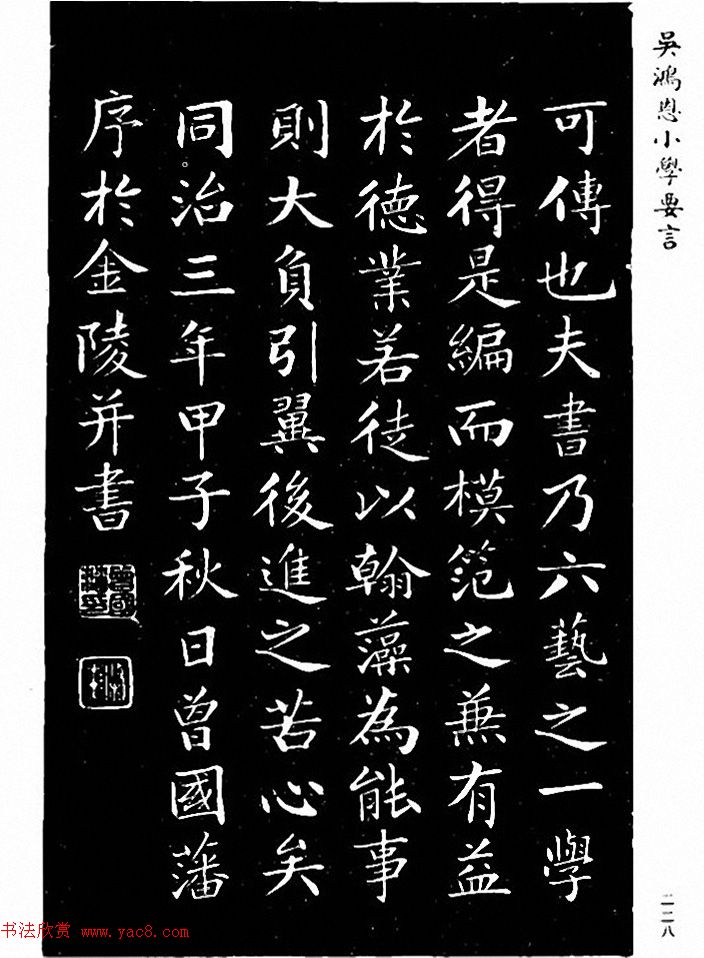 吳鴻恩小學要言
可傳也夫書乃六藝之一學
者得是編而模笵之兼有益
於德業若徒以翰藻為能事
則大負引翼後進之苦心矣
同治三年甲子秋日曾國藩
序於金陵并書
二二八
书法欣赏 www.yac8.com